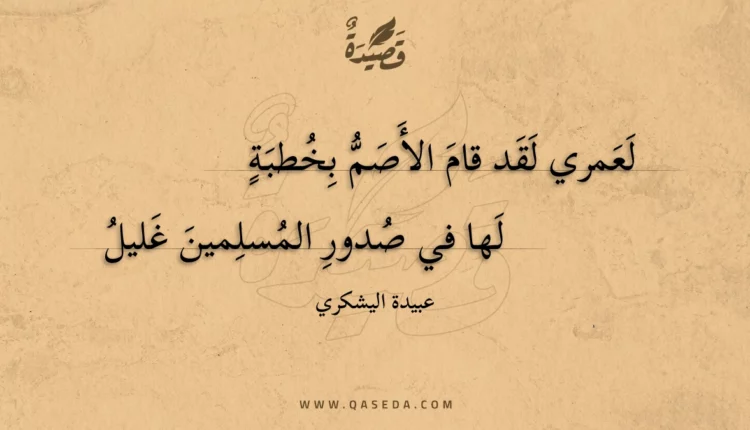 قَصِيدَةٌ
لَعَمري لَقَد قامَ الأَصَمُّ بِخُطبَةٍ
لَها في صُدورِ المُسلِمينَ غَليلُ
عبيدة اليشكري
WWW.QASEDA.COM